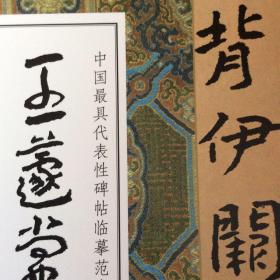 背伊闕
中国最具代表性碑帖临摹范
王蘧常